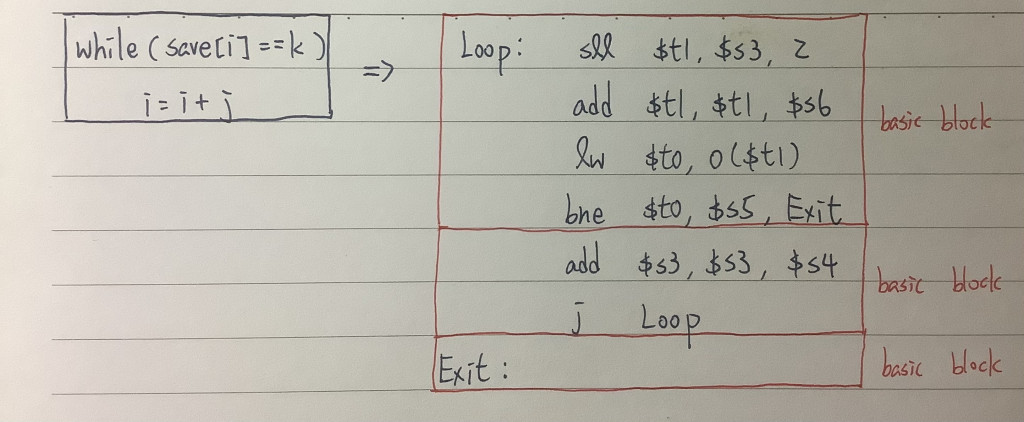 while (save[i] == k)
i = i + j
=>
Loop: sll $t1, $s3, 2
add $t1, $t1, $s6
lw $t0, 0($t1)
bne $t0, $s5, Exit
basic block
add $s3, $s3, $s4
j Loop
basic block
Exit :
basic block